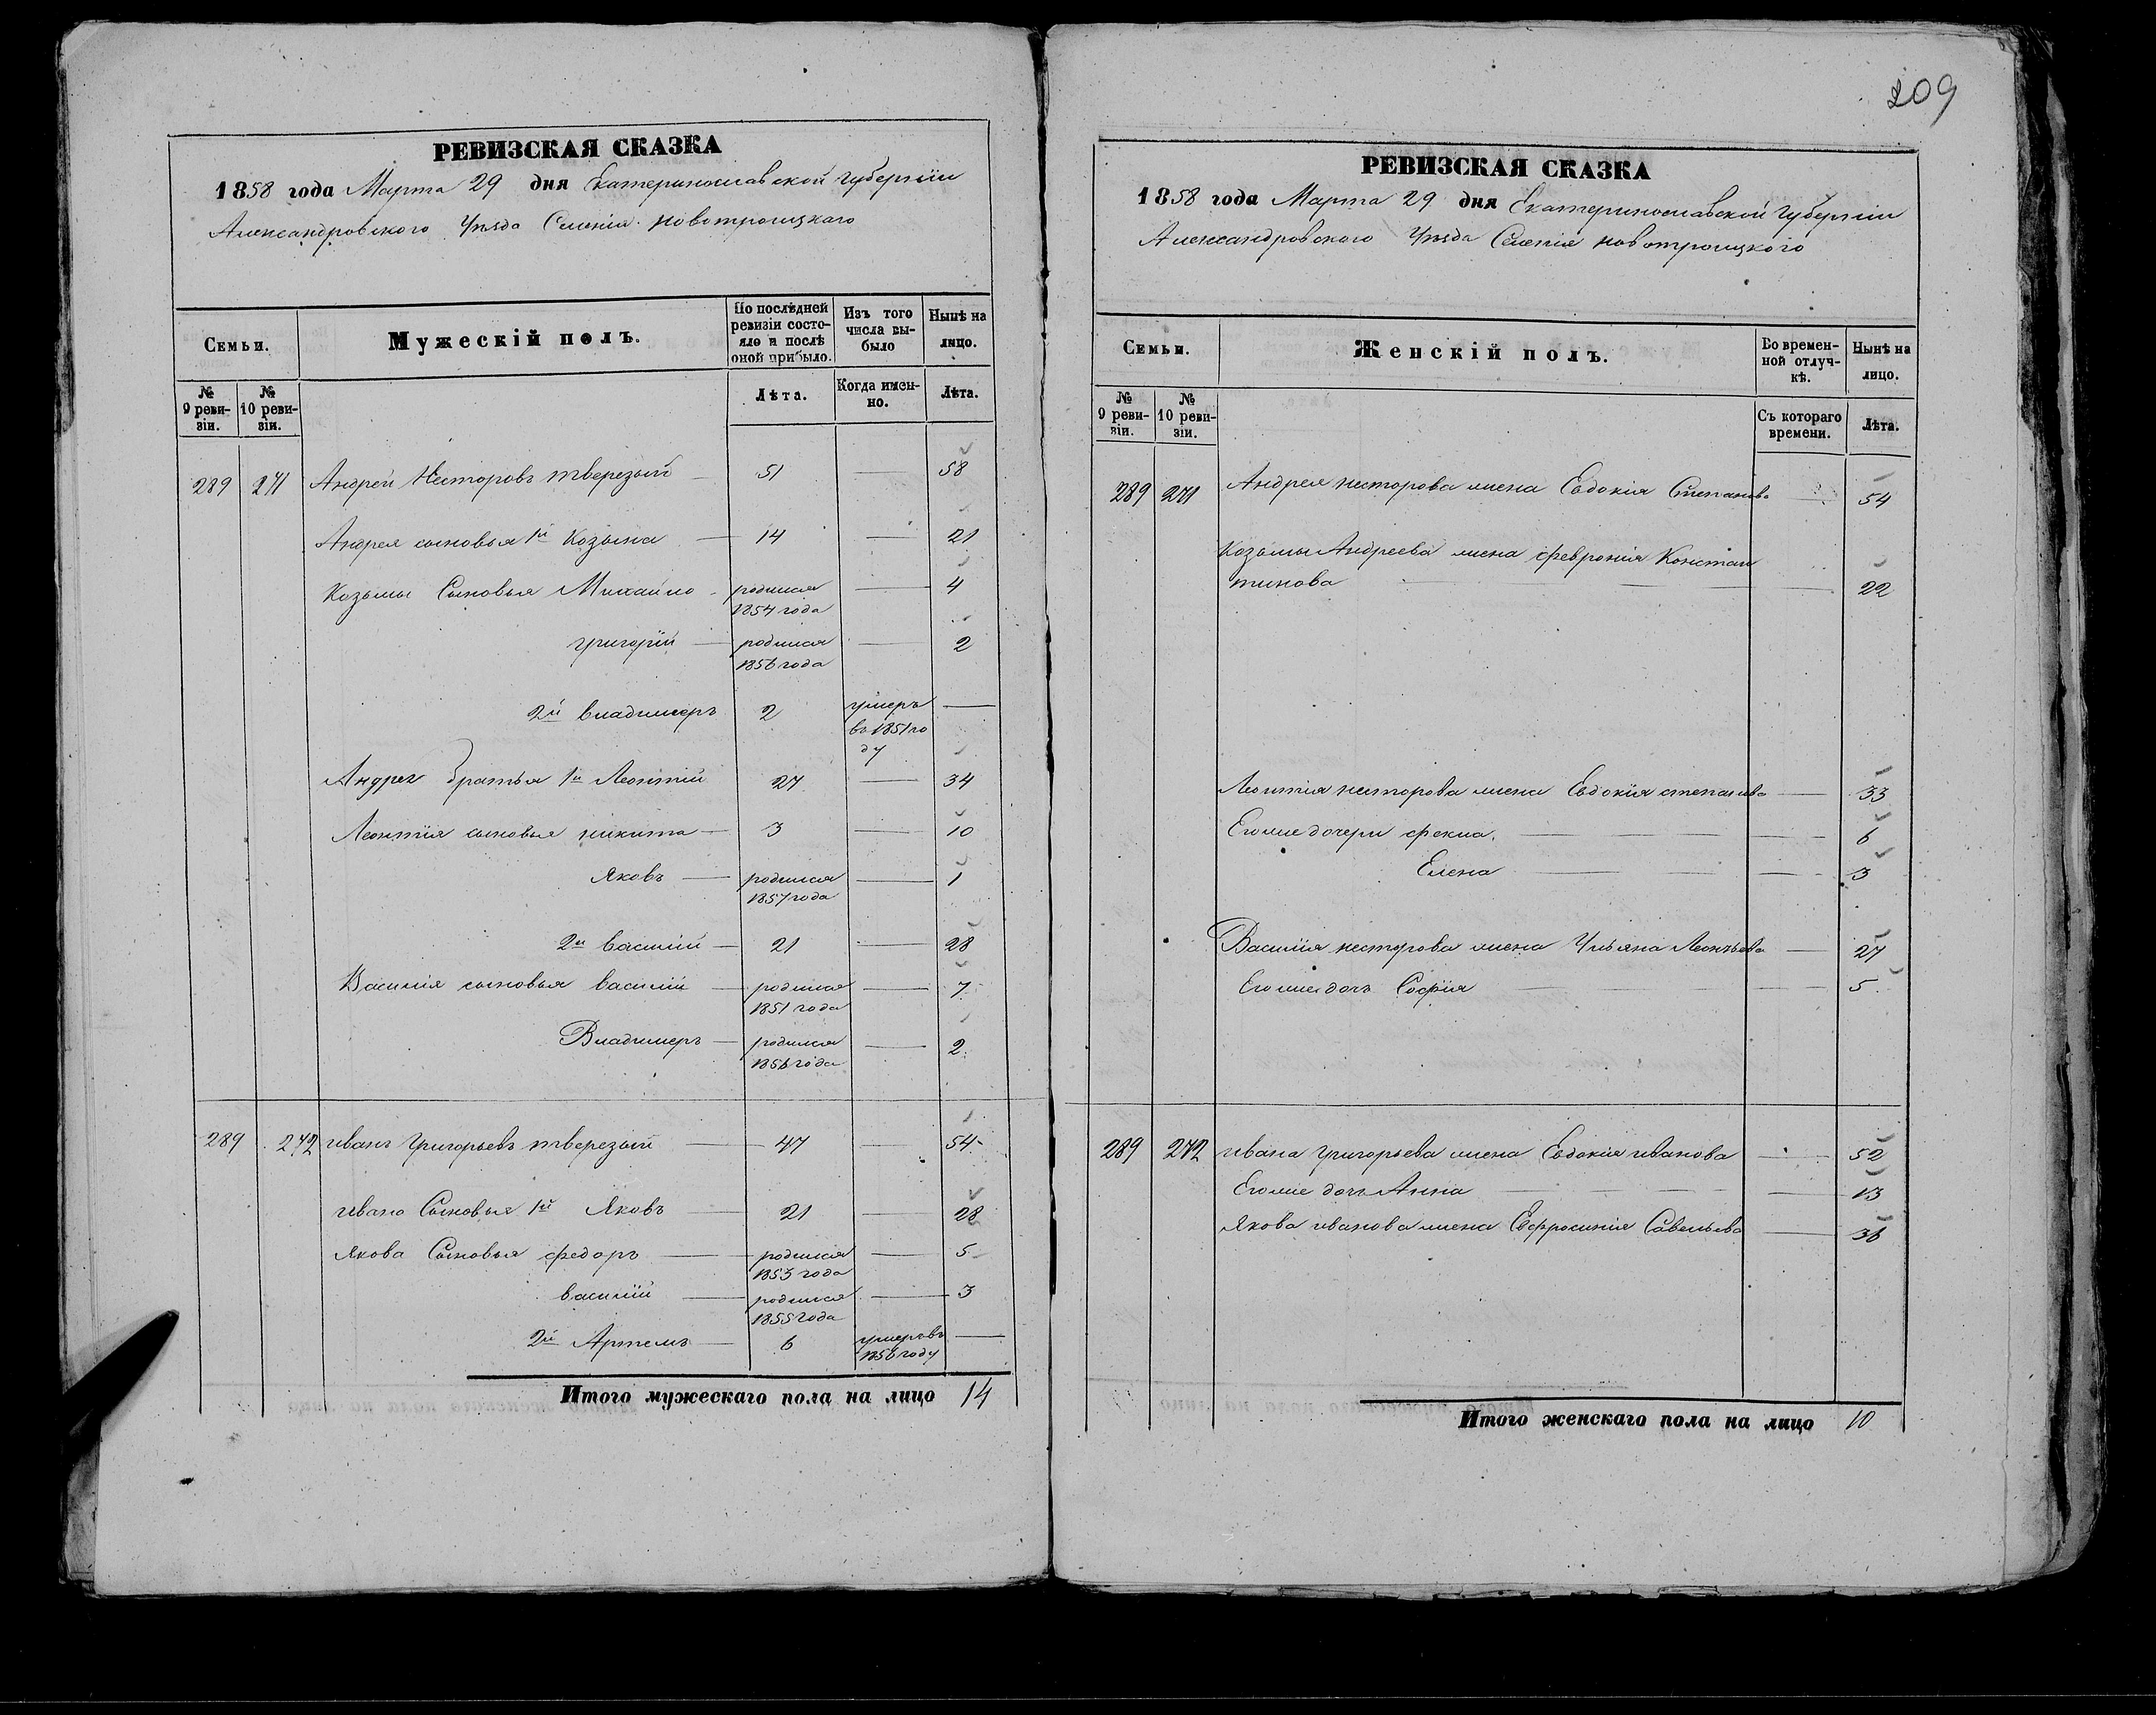 209
РЕВИЗСКАЯ СКАЗКА
1858 года Марта 29 дня Екатеринославской губернiи
Александровского Уѣзда Селенiя Новотроицкаго
Семьи.
Мужескiй полъ.
По послѣдней ревизiи состояло и послѣ оной прибыло.
Изъ того числа выбыло
Нынѣ на лицо.
№ 9 ревизiи.
№ 10 ревизiи.
Лѣта.
Когда именно.
Лѣта.
289 271 Андрей Несторовъ тверезый 51 — 58
Андрея сыновья 1й Козьма — 14 — 21
Козьмы Сыновья Михайло - родился 1854 года — 4
григорiй — родился 1856 года — 2
2й владимеръ 2 умеръ въ 1851 году —
Андрея братья 1й Леонтiй 27 — 34
Леонтiя сыновья никита — 3 — 10
Яковъ — родился 1857 года — 1
2й василiй — 21 — 28
Василiя сыновья василiй — родился 1851 года — 7
Владимеръ — родился 1856 года — 2
289 272 иванъ Григорьевъ тверезый — 47 — 54
ивана Сыновья 1й Яковъ — 21 — 28
Якова Сыновья федоръ — родился 1853 года — 5
василiй — родился 1855 года — 3
2й Артемъ — 6 умеръ въ 1856 году —
Итого мужескаго пола на лицо 14
РЕВИЗСКАЯ СКАЗКА
1858 года Марта 29 дня Екатеринославской губернiи
Александровского Уѣзда Селенiя новотроицкого
Семьи.
Женскiй полъ.
Во временной отлучкѣ.
Нынѣ на лицо.
№ 9 ревизiи.
№ 10 ревизiи.
Съ котораго времени.
Лѣта.
289 271 Андрея несторова жена Евдокiя Степанова — 54
Козьмы Андреева жена феврония Констан
тинова — 22
Леонтiя несторова жена Евдокiя степанова — 33
Егоже дочери фекла. — 6
Елена — 3
Василiя несторова жена Ульяна Леонтьева — 27
Егоже дочь Софiя — 5
289 272 ивана григорьева жена Евдокiя иванова — 52
Егоже дочь Анна — 13
Якова иванова жена Ефросинiя Савельева — 36
Итого женскаго пола на лицо 10